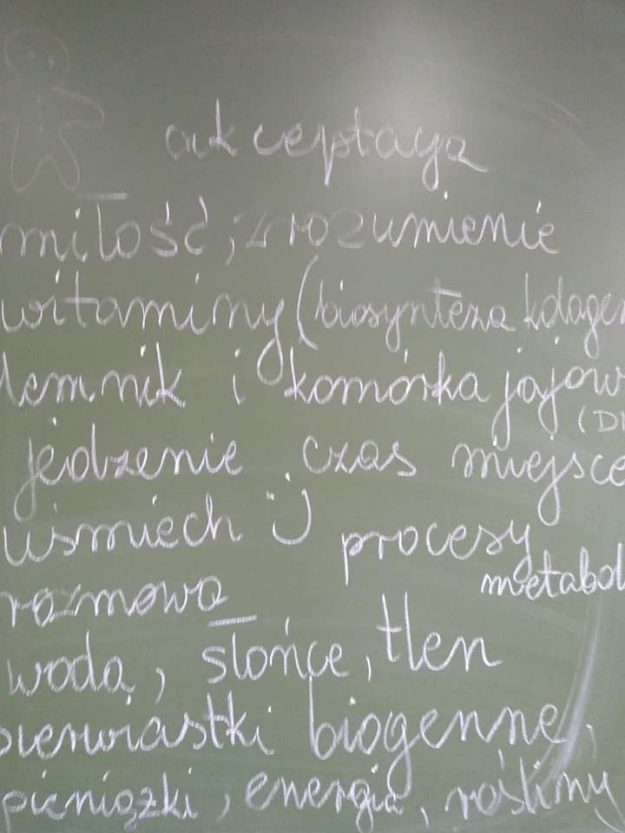 akceptacja
miłość, zrozumienie
witaminy (biosynteza kolagen
lemnik i komórka jajow
(D
jedzenie czas miejsce
uśmiech :) procesy
metabol
rozmowa
woda, słońce, tlen
pierwiastki biogenne,
pieniążki, energia, rośliny